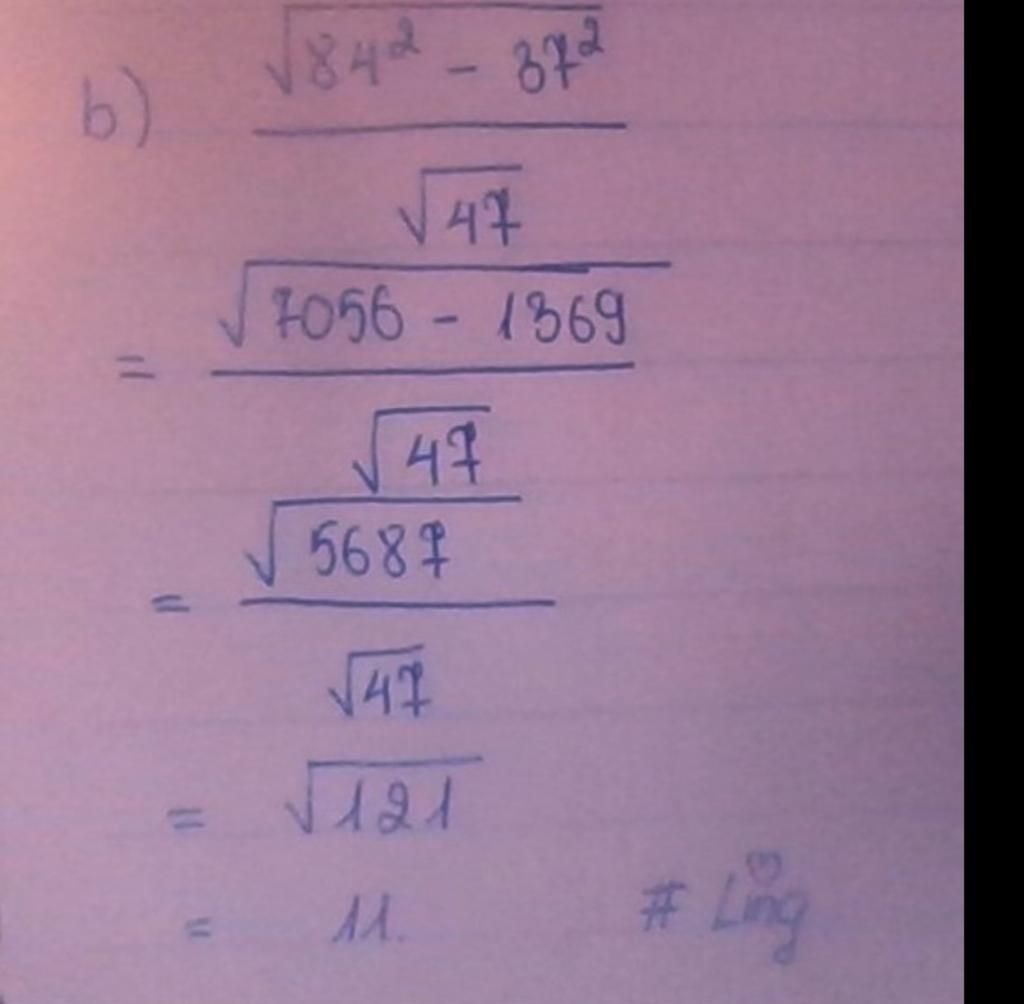 b) √(84² - 37²) / √47
= √(7056 - 1369) / √47
= √5687 / √47
= √121
= 11. # Ling